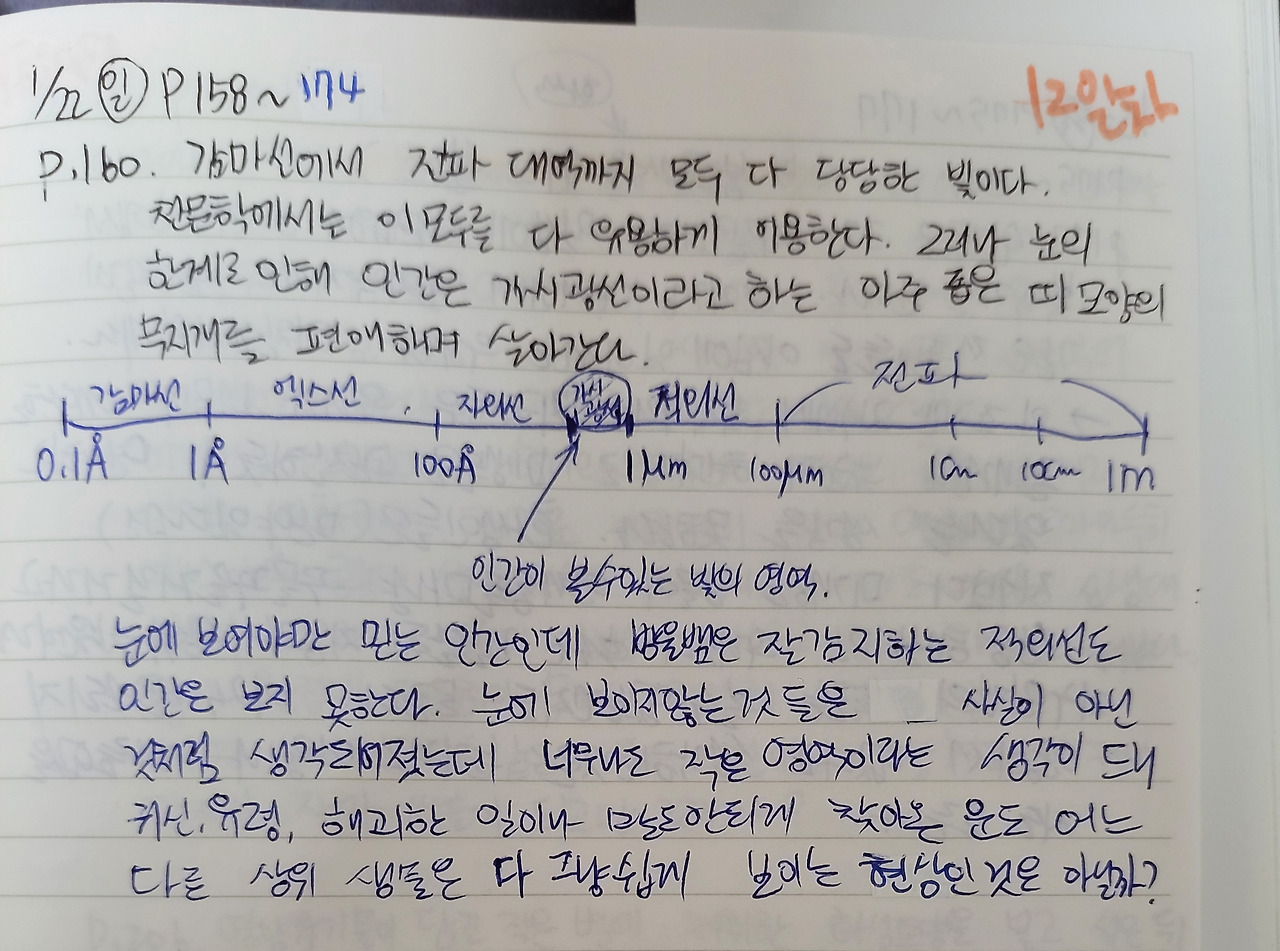 1/22 (일) P 158 ~ 174
12일차
P.160. 감마선에서 전파 대역까지 모두 다 당당한 빛이다.
천문학에서는 이 모두를 다 유용하게 이용한다. 그러나 눈의
한계로 인해 인간은 가시광선이라고 하는 아주 좁은 띠 모양의
무지개를 편애하며 살아간다.
감마선 엑스선 자외선 가시광선 적외선 전파
0.1Å 1Å 100Å 1μm 100μm 1cm 10cm 1m
인간이 볼수있는 빛의 영역.
눈에 보여야만 믿는 인간인데 방울뱀은 잘감지하는 적외선도
인간은 보지 못한다. 눈에 보이지않는것들은 _ 사실이 아닌
것처럼 생각되어졌는데 너무나도 작은 영역이라는 생각이 드니
귀신, 유령, 해괴한 일이나 말도안되게 찾아온 운도 어느
다른 상위 생물들은 다 그냥쉽게 보이는 현상인것은 아닐까?